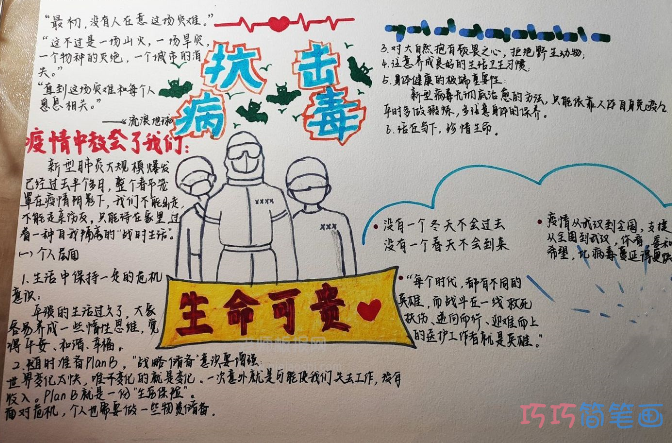 “最初，没有人在意这场灾难。”
“这不过是一场山火，一场旱灾，
一个物种的灭绝，一个城市的消
失。”
“直到这场灾难和每个人
息息相关。”
——流浪地球
抗击
病毒
疫情中教会了我们：
新型肺炎大规模爆发
已经过去半个多月，整个春节笼
罩在疫情阴影下，我们不能出走，
不能走亲访友，只能待在家里，过
着一种自我隔离的“战时生活”。
(一)个人层面
1.生活中保持一定的危机
意识：
平稳的生活过久了，大家
容易养成一些惰性思维，觉
得平安、和谐、幸福。
2.随时准备Plan B，“战略储备”意识要增强
世界变化太快，唯一不变的就是变化。一次意外就是可能使我们失去工作，没有
收入。Plan B就是一份“生存保险”。
面对危机，个人也需要做一些物资储备。
3.对大自然抱有敬畏之心，拒绝野生动物。
4.注意养成良好的生活卫生习惯。
5.身体健康的极端重要性：
新型病毒无彻底治愈的方法，只能依靠人体自身免疫力
平时多做锻炼，多注意身体的保养。
6.活在当下，珍惜生命。
没有一个冬天不会过去
没有一个春天不会到来
疫情从武汉到全国，支援
从全国到武汉，你看，
希望，比病毒蔓延得更快
“每个时代，都有不同的
英雄，而战斗在一线救死
扶伤、逆向而行、迎难而上
的医护工作者就是英雄。”
xxxx
xxxx
生命可贵
巧巧简笔画